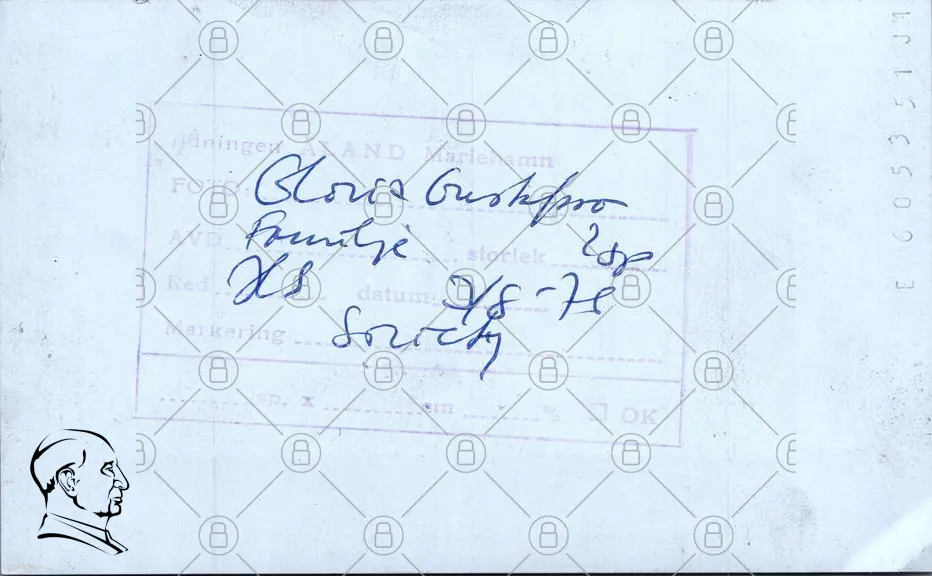 Tidningen ÅLAND Mariehamn
FOTO: Gloria
AVD. Familje storlek 2sp
Red. HS datum: 7/8-78
Markering Society
sp. x cm % OK
E 6 0 5 / 3 5 1 J 1